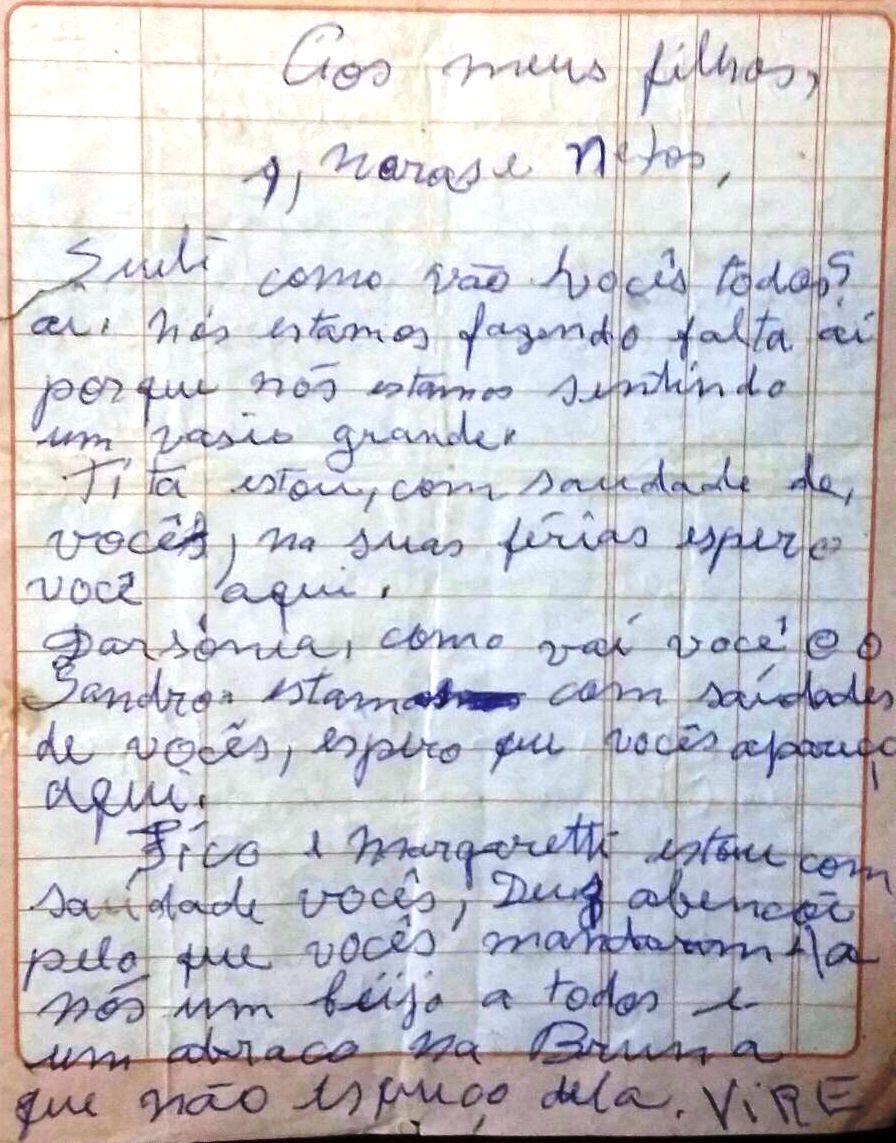 Aos meus filhos,
, noras e netos,
Sueli como vão vocês todos?
ai, nós estamos fazendo falta ái
porque nós estamos sentindo
um vasio grande.
Tita estou, com saudade de,
vocês, na suas férias espero
você aqui.
Darsônia, como vai você e o
Sandro. estamos com saídades
de vocês, espero que vocês apareça
aqui.
Tico e Margaretti estou com
saídade vocês, Deus abençõe
pelo que vocês mandaram a
nós um beijo a todos e
um abraco na Bruna
que não esqueço dela. ViRE